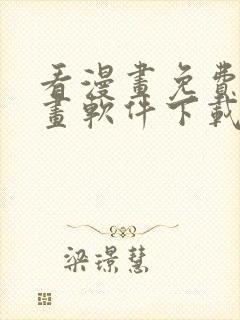 看漫畫免費
畫軟件下載
梁璟慧